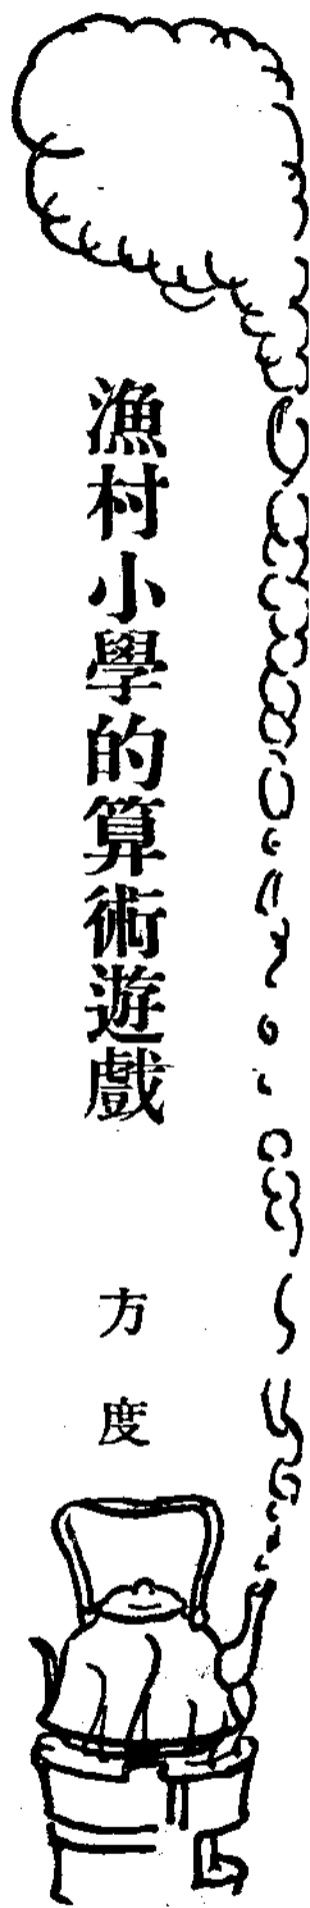 漁村小學的算術遊戲
方度